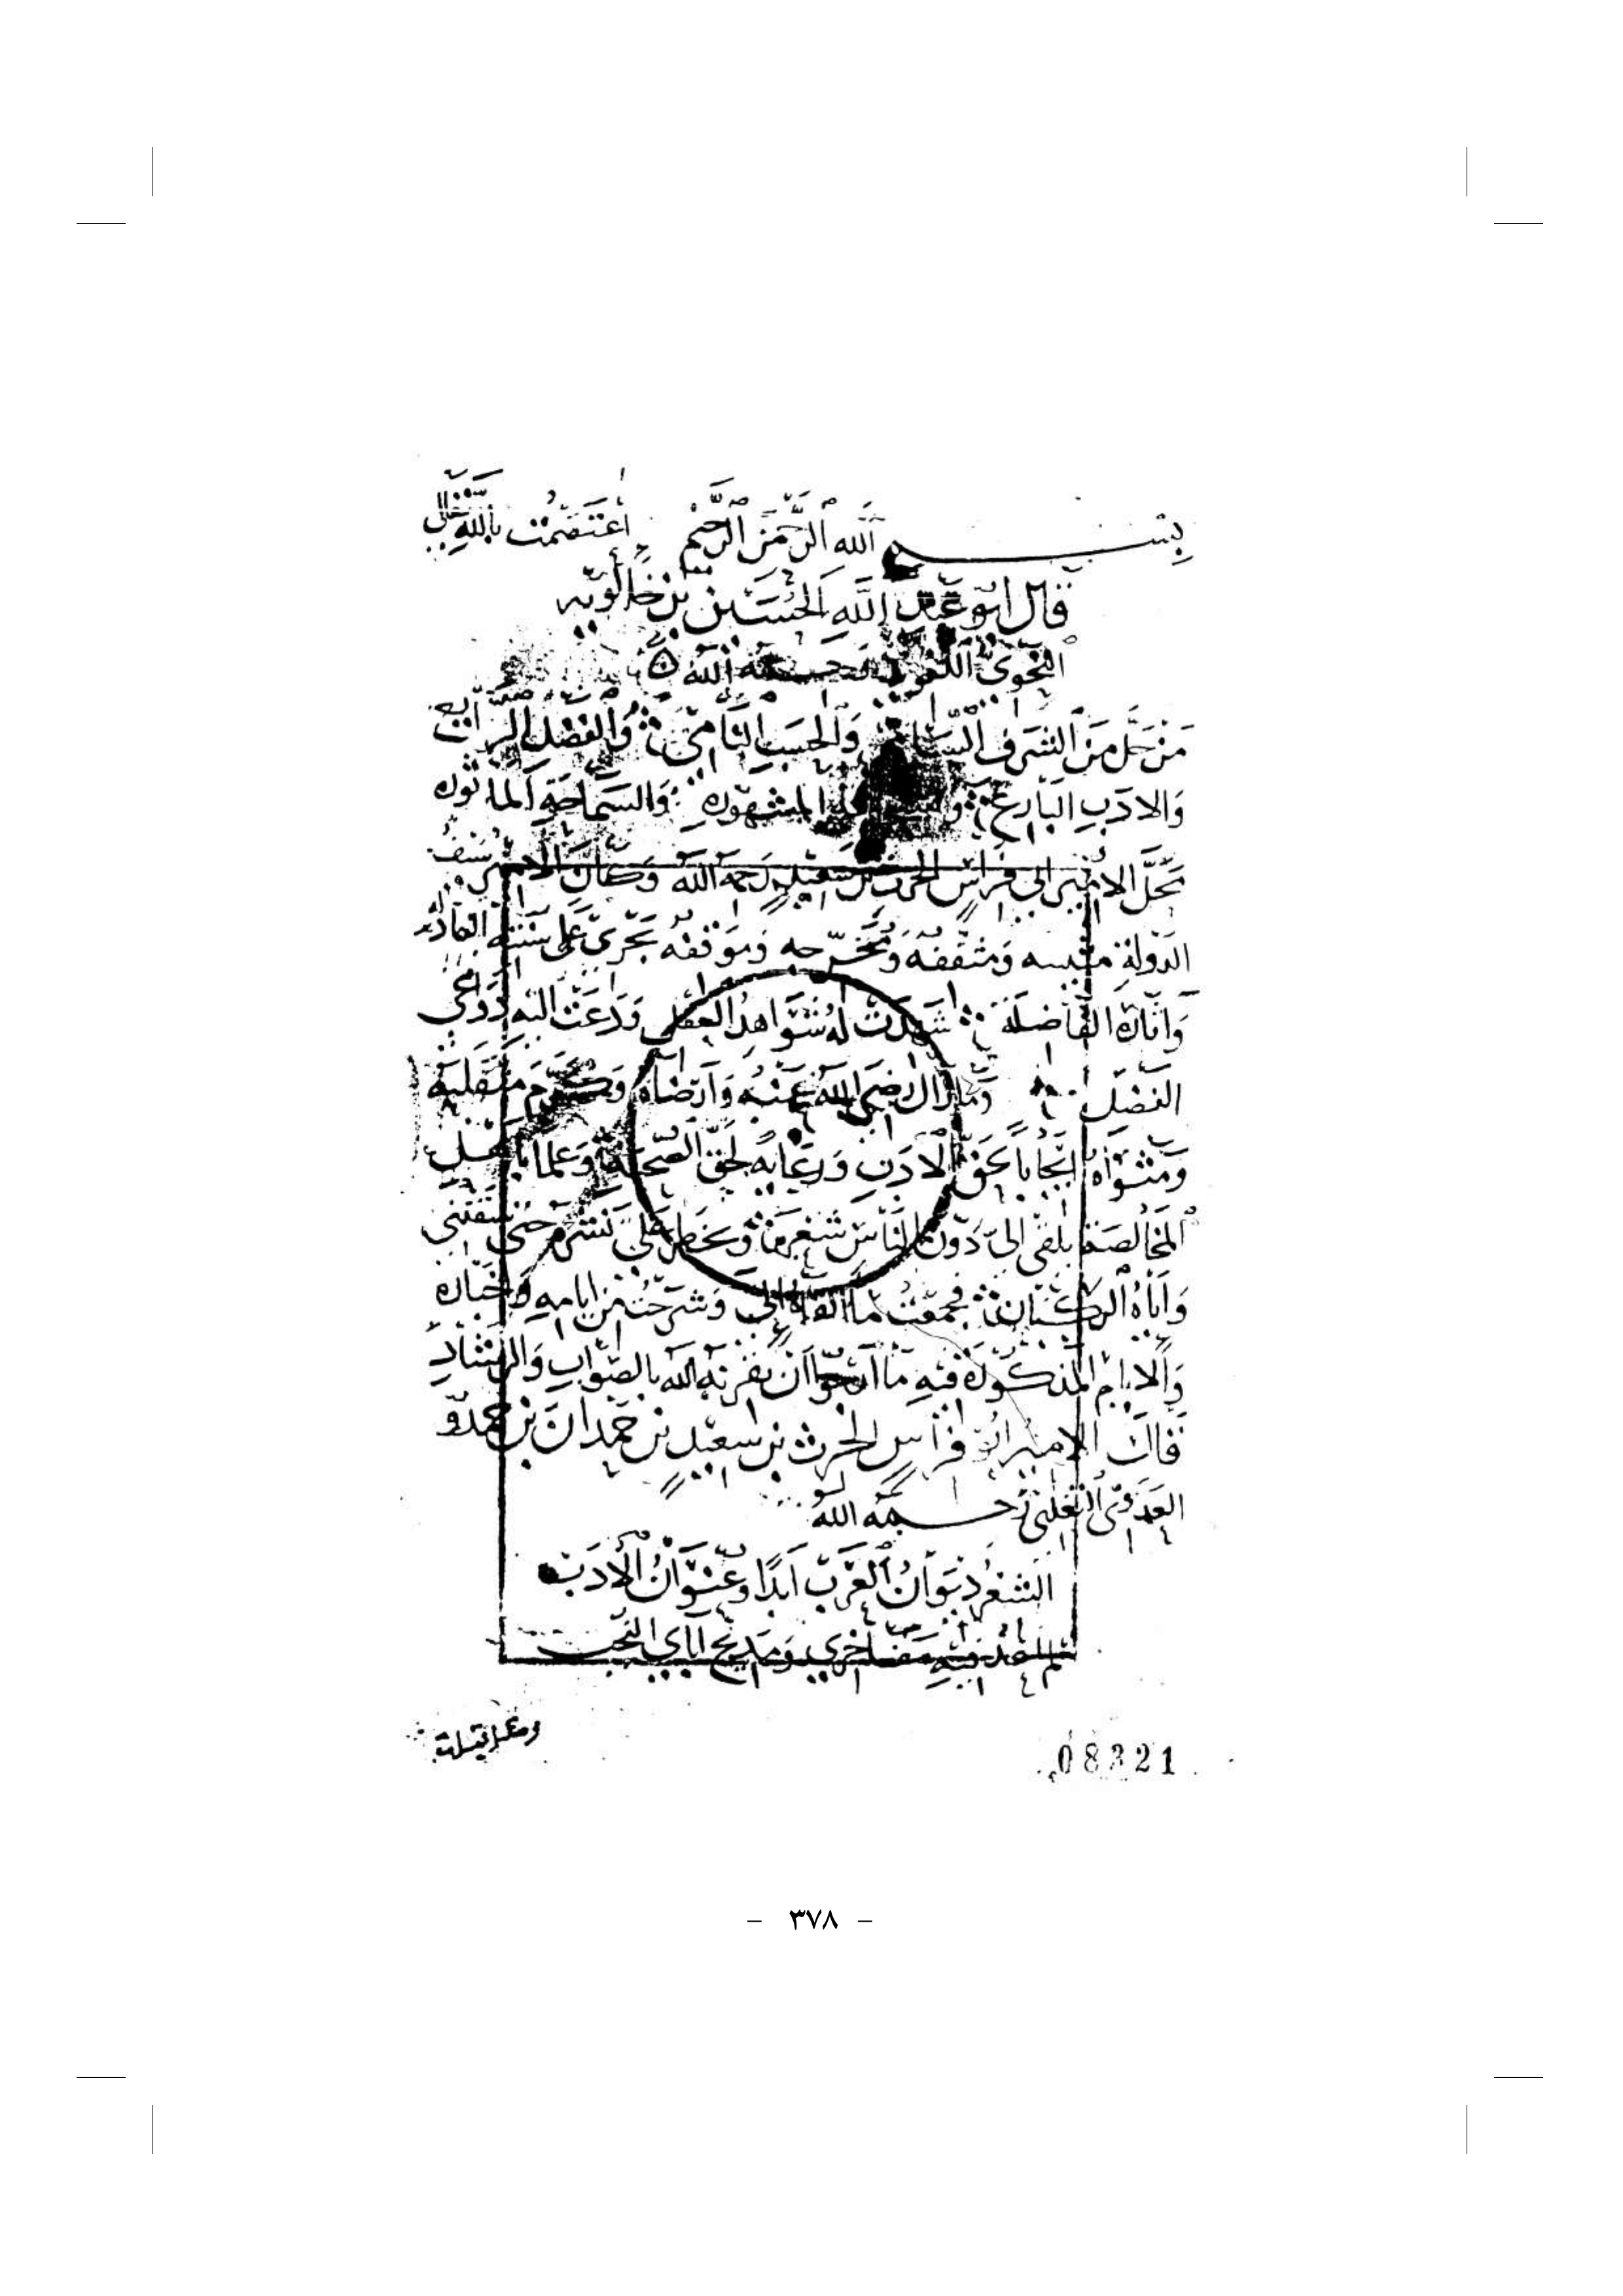 بسم الله الرحمن الرحيم اعتصمت بالله تعالى
قال ابو عبد الله الحسين بن خالويه
النحوى اللغوى رحمه الله
من حل من الشرف السامى والحسب النامى والفضل الرائع
والادب البارع المشهوره والسماحة الماثوره
محل الامير ابى فراس الحرث بن سعيد رحمه الله وكان الامير سيف
الدولة ومثقفه ومخرجه وموقفه يجرى على سننه العادله
واثاره الفاضلة شهدت له شواهد العقل ودعت اليه دواعى
الفضل وما زال رضى الله عنه وارضاه وكرم منقلبه
ومثواه ايجابا لحق الادب ورعاية لحق الصحبة وعلما باهل
المخالصة يلقى الى دون الناس شعره ويحظر على نشره حتى سبقتنى
واياه الركبان فجمعت ما القاه الى وشرحت من ايامه واخباره
والايام المذكورة فيه ما ارجوا ان يقرنه الله بالصواب والرشاد
قال الامير ابو فراس الحرث بن سعيد بن حمدان بن حمدون
العدوى التغلبى رحمه الله
الشعر ديوان العرب ابدا وعنوان الادب
لم اعد فيه مفاخرى ومديح اباى النجب
ومقطعات
08321
– ٣٧٨ –